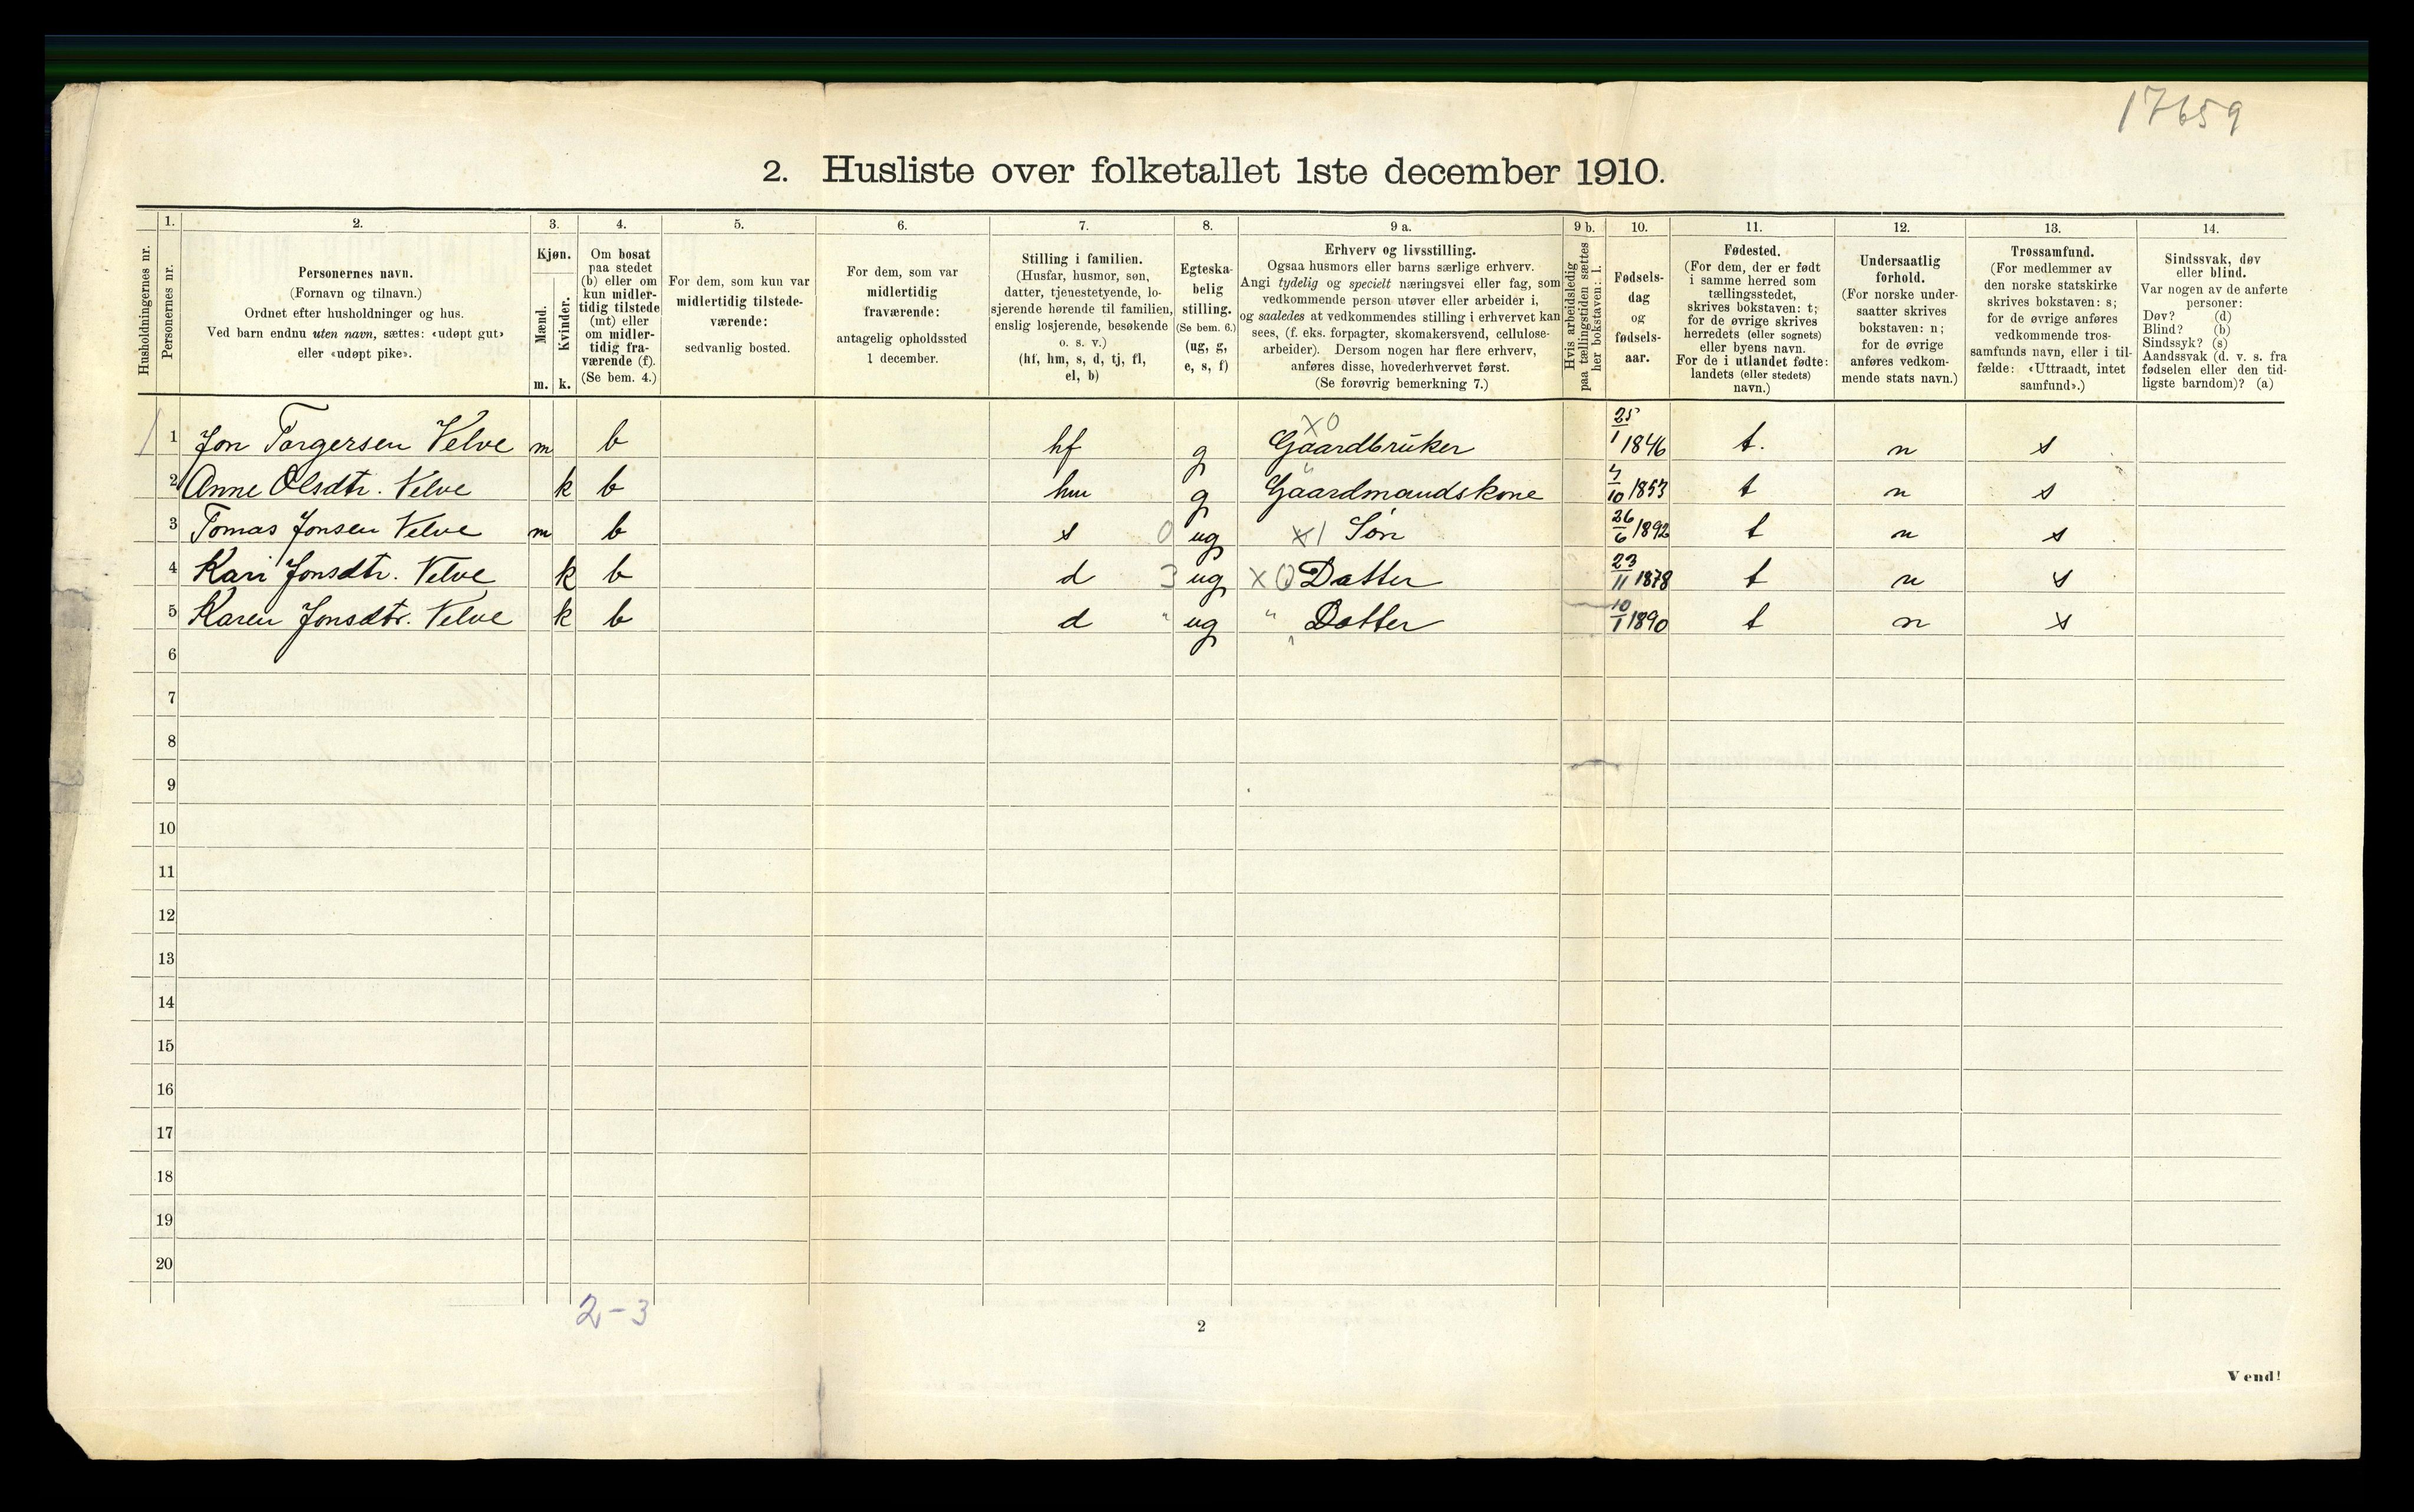 17659
2. Husliste over folketallet 1ste december 1910.
Husholdningernes nr.
1.
Personernes nr.
2.
Personernes navn.
(Fornavn og tilnavn.)
Ordnet efter husholdninger og hus.
Ved barn endnu uten navn, sættes: «udøpt gut»
eller «udøpt pike».
3.
Kjøn.
Mænd.
Kvinder.
m. k.
4.
Om bosat
paa stedet
(b) eller om
kun midler-
tidig tilstede
(mt) eller
om midler-
tidig fra-
værende (f).
(Se bem. 4.)
5.
For dem, som kun var
midlertidig tilstede-
værende:
sedvanlig bosted.
6.
For dem, som var
midlertidig
fraværende:
antagelig opholdssted
1 december.
7.
Stilling i familien.
(Husfar, husmor, søn,
datter, tjenestetyende, lo-
sjerende hørende til familien,
enslig losjerende, besøkende
o. s. v.)
(hf, hm, s, d, tj, fl,
el, b)
8.
Egteska-
belig
stilling.
(Se bem. 6.)
(ug, g,
e, s, f)
9 a.
Erhverv og livsstilling.
Ogsaa husmors eller barns særlige erhverv.
Angi tydelig og specielt næringsvei eller fag, som
vedkommende person utøver eller arbeider i,
og saaledes at vedkommendes stilling i erhvervet kan
sees, (f. eks. forpagter, skomakersvend, cellulose-
arbeider). Dersom nogen har flere erhverv,
anføres disse, hovederhvervet først.
(Se forøvrig bemerkning 7.)
9 b.
Hvis arbeidsledig
paa tællingstiden sættes
her bokstaven: l.
10.
Fødsels-
dag
og
fødsels-
aar.
11.
Fødested.
(For dem, der er født
i samme herred som
tællingsstedet,
skrives bokstaven: t;
for de øvrige skrives
herredets (eller sognets)
eller byens navn.
For de i utlandet fødte:
landets (eller stedets)
navn.)
12.
Undersaatlig
forhold.
(For norske under-
saatter skrives
bokstaven: n;
for de øvrige
anføres vedkom-
mende stats navn.)
13.
Trossamfund.
(For medlemmer av
den norske statskirke
skrives bokstaven: s;
for de øvrige anføres
vedkommende tros-
samfunds navn, eller i til-
fælde: «Uttraadt, intet
samfund».)
14.
Sindssvak, døv
eller blind.
Var nogen av de anførte
personer:
Døv? (d)
Blind? (b)
Sindssyk? (s)
Aandssvak (d. v. s. fra
fødselen eller den tid-
ligste barndom)? (a)
1 1 Jon Torgersen Velve m b hf g X0 Gaardbruker 25/1 1846 t. n s
2 Anne Olsdtr. Velve k b hm g " Gaardmandskone 4/10 1853 t n s
3 Tomas Jonsen Velve m b s 0 ug X1 Søn 26/6 1892 t n s
4 Kari Jonsdtr. Velve k b d 3 ug X0 Datter 23/11 1878 t n s
5 Karen Jonsdtr. Velve k b d " ug " Datter 10/1 1890 t n s
6
7
8
9
10
11
12
13
14
15
16
17
18
19
20
2-3
2
Vend!